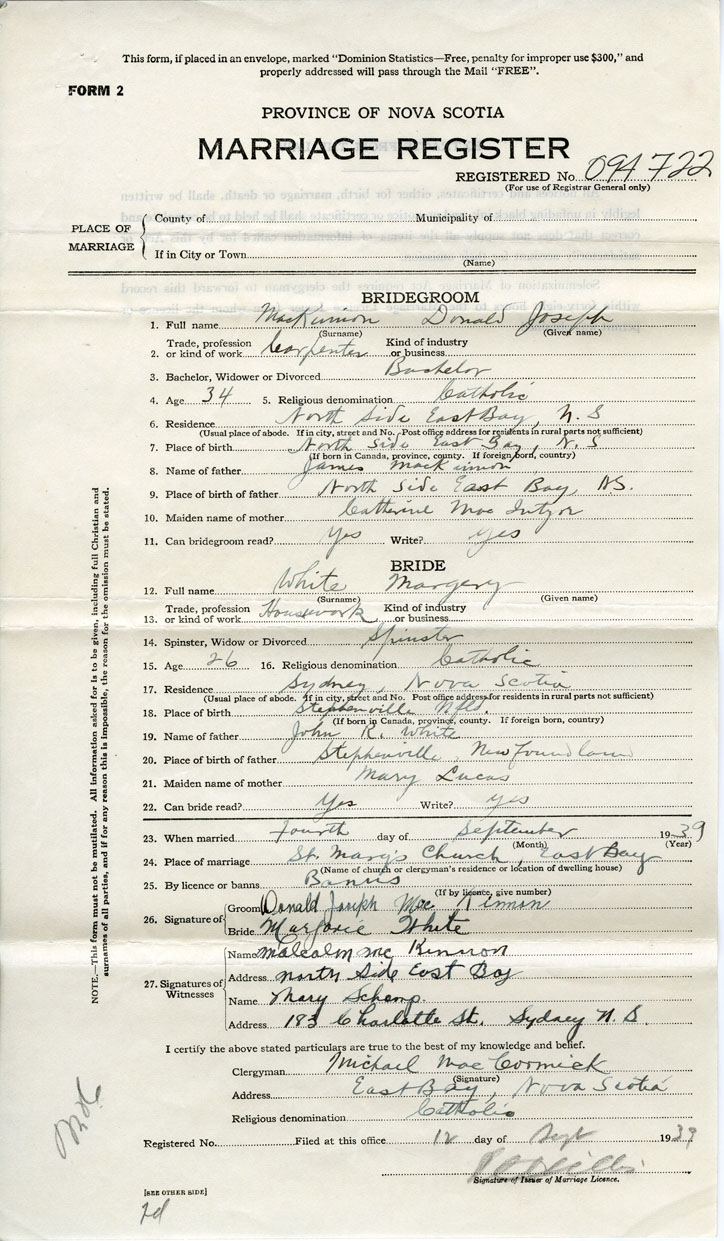 This form, if placed in an envelope, marked "Dominion Statistics—Free, penalty for improper use $300," and
properly addressed will pass through the Mail "FREE".
FORM 2
PROVINCE OF NOVA SCOTIA
MARRIAGE REGISTER
REGISTERED No. 094722
(For use of Registrar General only)
PLACE OF MARRIAGE
County of Municipality of
If in City or Town
(Name)
BRIDEGROOM
1. Full name MacKinnon Donald Joseph
(Surname) (Given name)
2. Trade, profession or kind of work Carpenter Kind of industry or business
3. Bachelor, Widower or Divorced Bachelor
4. Age 34 5. Religious denomination Catholic
6. Residence North Side East Bay, N.S
(Usual place of abode. If in city, street and No. Post office address for residents in rural parts not sufficient)
7. Place of birth North Side East Bay, N.S
(If born in Canada, province, county. If foreign born, country)
8. Name of father James MacKinnon
9. Place of birth of father North Side East Bay, N.S.
10. Maiden name of mother Catherine Mac Intyre
11. Can bridegroom read? Yes Write? Yes
BRIDE
12. Full name White Margery
(Surname) (Given name)
13. Trade, profession or kind of work Housework Kind of industry or business
14. Spinster, Widow or Divorced Spinster
15. Age 26 16. Religious denomination Catholic
17. Residence Sydney, Nova Scotia
(Usual place of abode. If in city, street and No. Post office address for residents in rural parts not sufficient)
18. Place of birth Stephenville Nfld.
(If born in Canada, province, county. If foreign born, country)
19. Name of father John R. White
20. Place of birth of father Stephenville, Newfoundland
21. Maiden name of mother Mary Lucas
22. Can bride read? Yes Write? Yes
23. When married Fourth day of September 1939
(Month) (Year)
24. Place of marriage St. Mary's Church, East Bay
(Name of church or clergyman's residence or location of dwelling house)
25. By licence or banns Banns
(If by licence, give number)
26. Signature of
Groom Donald Joseph Mac Kinnon
Bride Marjorie White
27. Signatures of Witnesses
Name Malcolm Mc Kinnon
Address North Side East Bay
Name Mary Schemp.
Address 183 Charlotte St. Sydney N.S.
I certify the above stated particulars are true to the best of my knowledge and belief.
Clergyman Michael MacCormick
(Signature)
Address East Bay, Nova Scotia
Religious denomination Catholic
Registered No. Filed at this office 12 day of Sept 1939
Signature of Issuer of Marriage Licence.
[SEE OTHER SIDE]
NOTE.—This form must not be mutilated. All information asked for is to be given, including full Christian and
surnames of all parties, and if for any reason this is impossible, the reason for the omission must be stated.